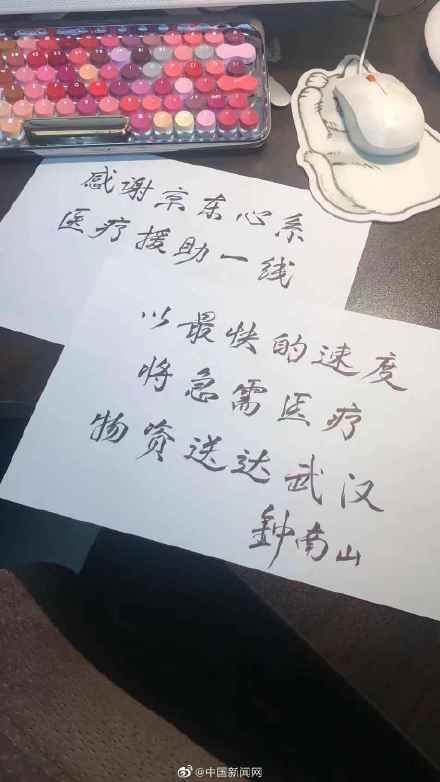 感谢京东心系
医疗援助一线
以最快的速度
将急需医疗
物资送达武汉
鍾南山
@中国新闻网